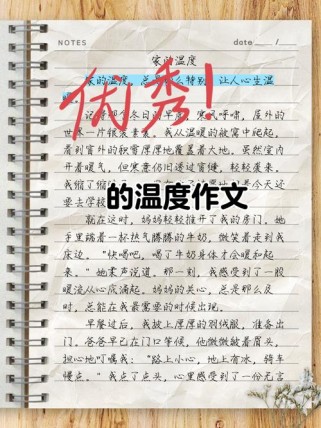 NOTES date
家的温度
家的温度，总是那么特别，让人心生温
优秀！
记得那个冬日的早晨，寒风呼啸，屋外的
世界一片银装素裹。我从温暖的被窝中爬起，
看到窗外的积雪厚厚地覆盖着大地。虽然室内
开着暖气，但寒意仍旧透过窗缝，轻轻袭来。
我缩了缩 今天还
要去学校
的温度作文
就在这时，妈妈轻轻推开了我的房门，她
手里端着一杯热气腾腾的牛奶，微笑着走到我
床边。“快喝吧，喝了牛奶身体才会暖和起
来。”她柔声说道。那一刻，我感受到了一股
暖流从心底涌起。妈妈的关心，总是那么及
时，总能在我最需要的时候出现。
早餐过后，我披上厚厚的羽绒服，准备出
门。爸爸早已在门口等候，他微微皱着眉头，
担心地叮嘱我：“路上小心，地上有冰，骑车
慢点。”我点了点头，心里感受到了一份无言